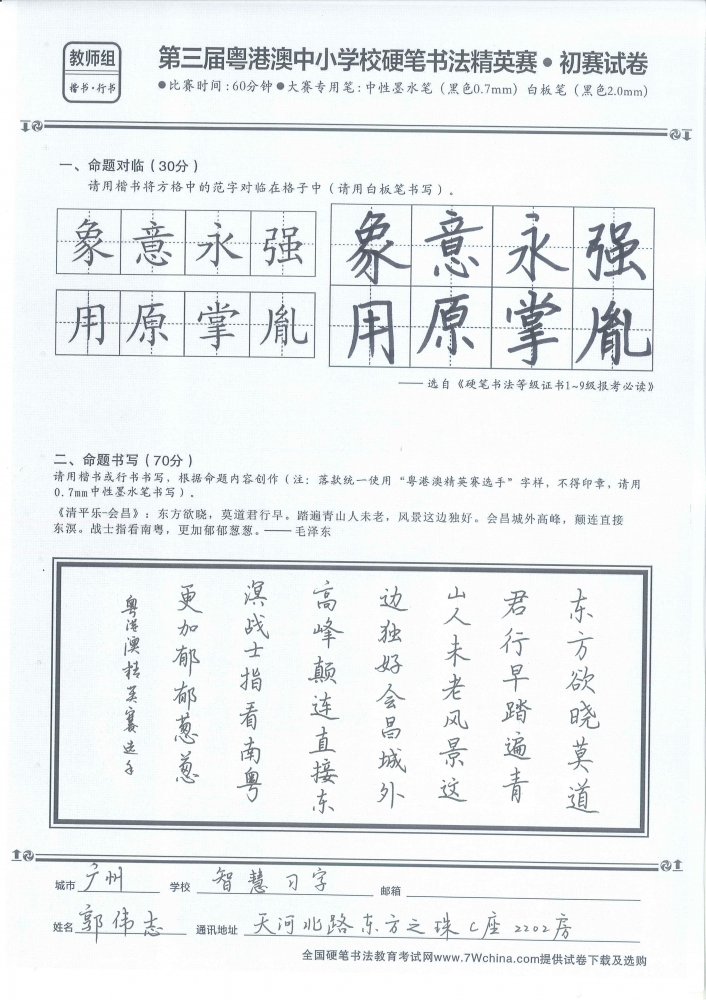 教师组
楷书·行书
第三届粤港澳中小学校硬笔书法精英赛•初赛试卷
●比赛时间:60分钟●大赛专用笔:中性墨水笔（黑色0.7mm）白板笔（黑色2.0mm）
一、命题对临（30分）
请用楷书将方格中的范字对临在格子中（请用白板笔书写）。
象意永强
象意永强
用原掌胤
用原掌胤
——选自《硬笔书法等级证书1~9级报考必读》
二、命题书写（70分）
请用楷书或行书书写，根据命题内容创作（注：落款统一使用“粤港澳精英赛选手”字样，不得印章，请用
0.7mm中性墨水笔书写）。
《清平乐-会昌》：东方欲晓，莫道君行早。踏遍青山人未老，风景这边独好。会昌城外高峰，颠连直接
东溟。战士指看南粤，更加郁郁葱葱。——毛泽东
东方欲晓莫道
君行早踏遍青
山人未老风景这
边独好会昌城外
高峰颠连直接东
溟战士指看南粤
更加郁郁葱葱
粤港澳精英赛选手
城市 广州 学校 智慧习字 邮箱
姓名 郭伟志 通讯地址 天河北路东方之珠C座2202房
全国硬笔书法教育考试网www.7Wchina.com提供试卷下载及选购